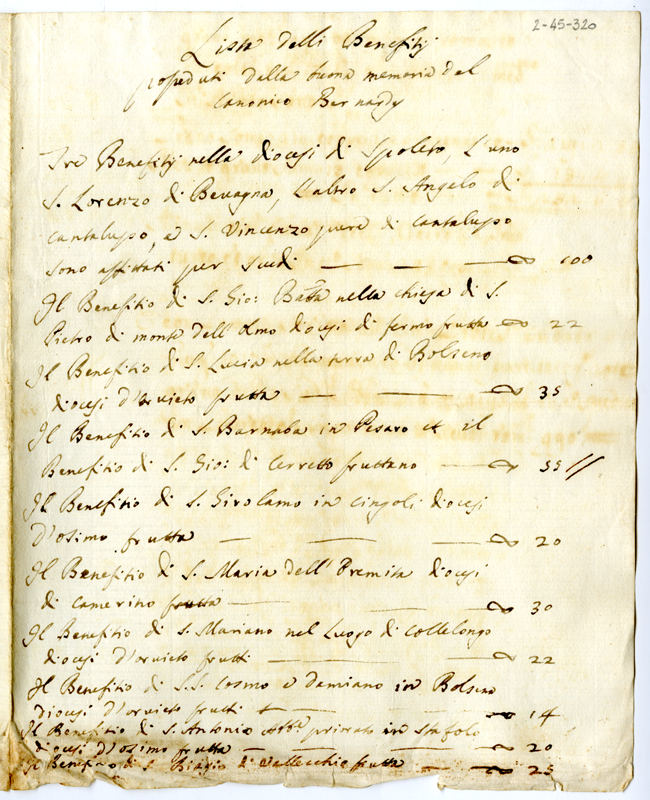 2-45-320
Lista delli Benefitij
posseduti dalla buona memoria del
Canonico Bernardij
Tre Benefitij nella diocesi di Spoleto, l'uno
S. Lorenzo di Bevagna, l'altro S. Angelo di
Cantalupo, e S. Vincenzo pure di Cantalupo
sono affittati per scudi — — 100
Il Benefitio di S. Gio: Batta nella chiesa di S.
Pietro di monte dell'olmo diocesi di fermo frutta 22
Il Benefitio di S. Lucia nella terra di Bolseno
diocesi d'orvieto frutta — — 35
Il Benefitio di S. Barnaba in Pesaro et il
Benefitio di S. Gio: di Cerretto fruttano — 55 //
Il Benefitio di S. Girolamo in Cingoli diocesi
d'osimo frutta — — — 20
Il Benefitio di S. Maria dell' Eremita diocesi
di Camerino frutta — — 30
Il Benefitio di S. Mariano nel Luogo di Collelongo
diocesi d'orvieto frutti — — 22
Il Benefitio di S.S. Cosmo e Damiano in Bolseno
diocesi d'orvieto frutti — — 14
Il Benefitio di S. Antonio Abb.e in Stafolo
diocesi d'osimo frutta — — 20
Il Benefitio di S. Biagio di Vallecchio frutta — 25